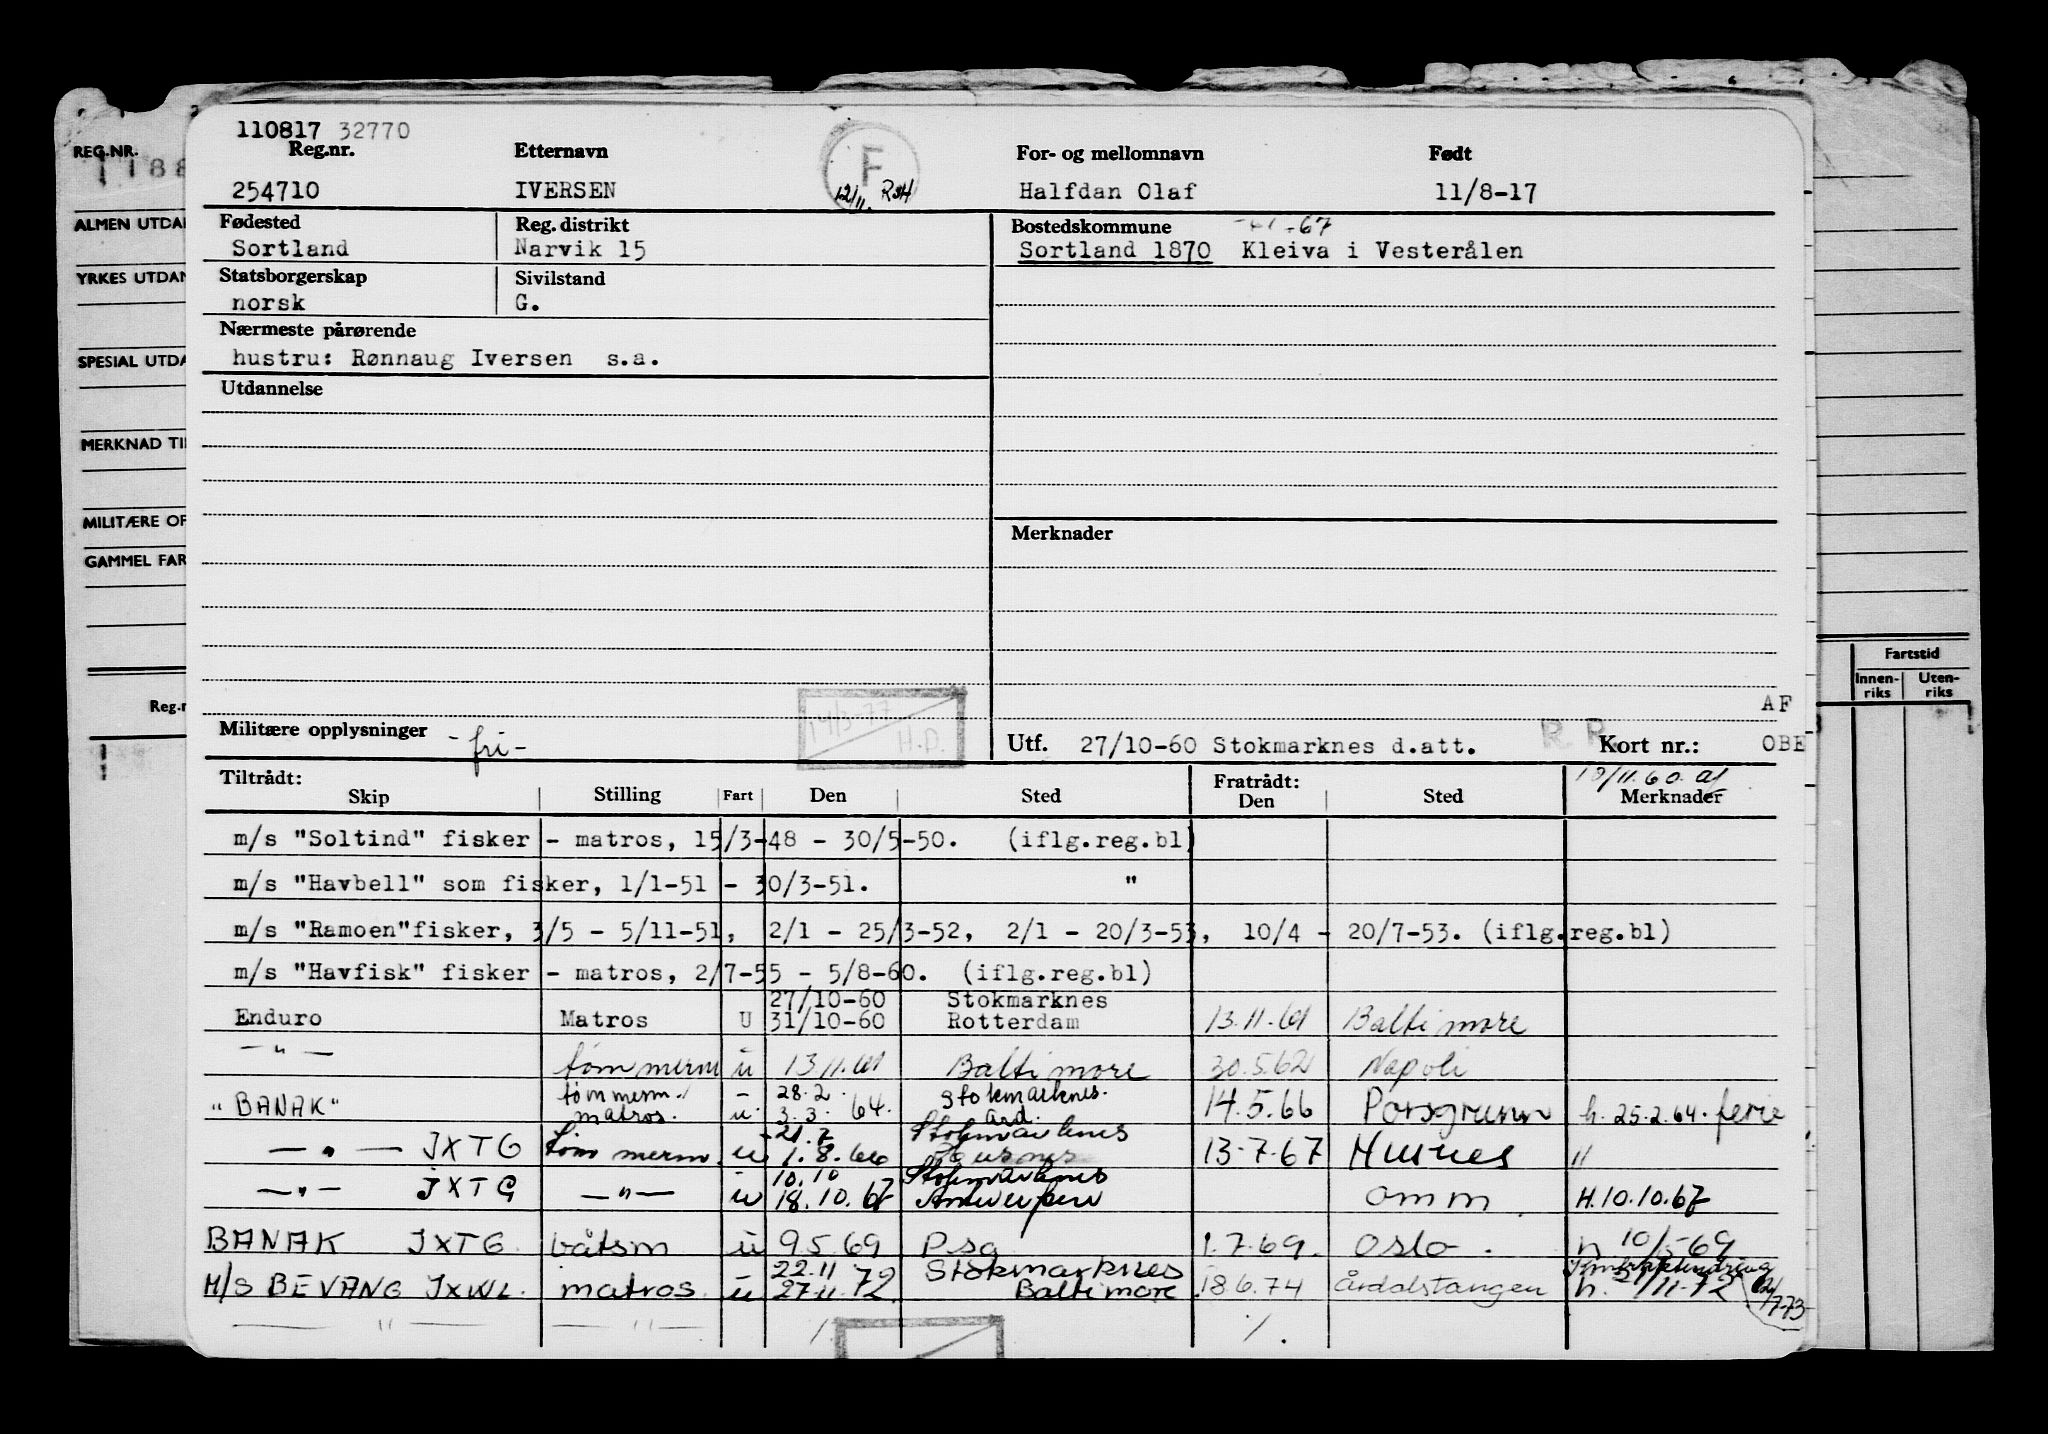 110817 32770
REG.NR. Reg.nr. Etternavn F For- og mellomnavn Født
254710 IVERSEN 12/11. Halfdan Olaf 11/8-17
ALMEN UTDA Fødested Reg. distrikt Bostedskommune -67
Sortland Narvik 15 Sortland 1870 Kleiva i Vesterålen
YRKES UTDAN Statsborgerskap Sivilstand
norsk G.
Nærmeste pårørende
SPESIAL UTDA hustru: Rønnaug Iversen s.a.
Utdannelse
MERKNAD TI
MILITÆRE OP Merknader
GAMMEL FAR
Fartstid
Innen-riks Uten-riks
AF
Militære opplysninger -fri- 14/3-77 H.P. Utf. 27/10-60 Stokmarknes d.att. R P. Kort nr.: OBE
Tiltrådt: Fratrådt: 10/11.60.
Skip Stilling Fart Den Sted Den Sted Merknader
m/s "Soltind" fisker - matros, 15/3-48 - 30/5-50. (iflg.reg.bl)
m/s "Havbell" som fisker, 1/1-51 - 30/3-51. "
m/s "Ramoen"fisker, 3/5 - 5/11-51, 2/1 - 25/3-52, 2/1 - 20/3-53, 10/4 - 20/7-53. (iflg.reg.bl)
m/s "Havfisk" fisker - matros, 2/7-55 - 5/8-60. (iflg.reg.bl)
27/10-60 Stokmarknes
Enduro Matros U 31/10-60 Rotterdam 13.11.61 Baltimore
—"— tømmerm u 13.11.61 Baltimore 30.5.62 Napoli
tømmerm. - 28.2. Stokmarknes.
"BANAK" matros. u. 3.3. 64. Ard. 14.5.66 Porsgrunn h. 25.2.64. ferie
21.7 Stokmarknes
—"— JXTG tømmerm. u 1.8.66 Husnes 13.7.67 Husnes "
10.10 Stokmarknes
—"— JXTG —"— u 18.10.67 Antwerpen omm. H.10.10.67
BANAK JXTG. båtsm u 9.5.69 Psg 1.7.69. Oslo. h 10/5-69
22.11 Stokmarknes
M/S BEVANG JXWL. matros. u 27.11.72 Baltimore 18.6.74 Årdalstangen h. 21/11-72 7-73
— " — — " — /. /.